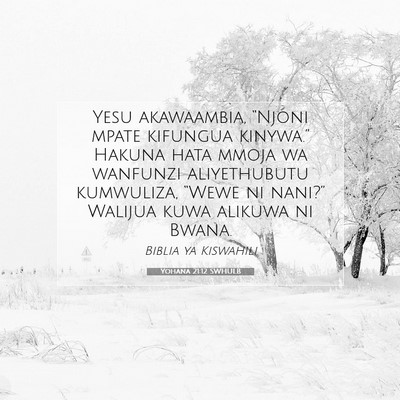 Yesu akawaambia, "Njóni
mpate kifungua kinywa."
Hakuna hata mmoja wa
wanfunzi aliyethubutu
kumwuliza, "Wewe ni nani?"
Walijua kuwa alikuwa ni
Bwana.
Biblia ya Kiswahili
Yohana 21:12 SWHULB